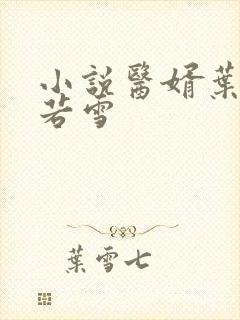 小說醫婿葉
若雪
葉雪七